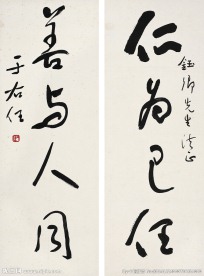 仁为己任
钰卿先生法正
善与人同
于右任